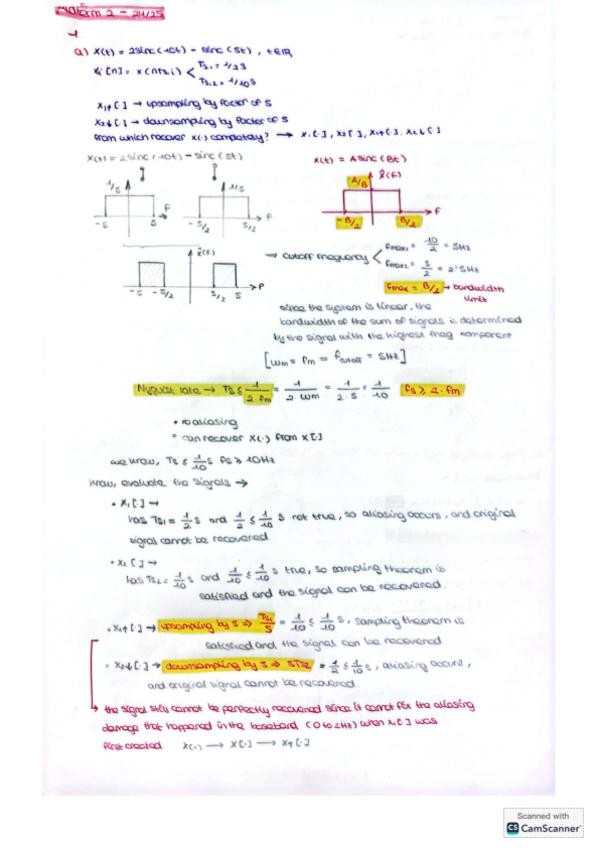 Midterm 2 - 24/25
1
a) x(t) = 2sinc(10t) - sinc(5t) , t∈IR
xi[n] = x(nTs,i) < Ts,1 = 1/2s
Ts,2 = 1/10s
x1↑[·] → upsampling by factor of 5
x2↓[·] → downsampling by factor of 5
from which recover x(·) completely? → x1[·], x2[·], x1↑[·], x2↓[·]
x(t) = 2sinc(10t) - sinc(5t)
x(t) = A sinc(Bt)
1/5
-5
5
f
1/5
-5/2
5/2
f
A/B
x̂(f)
-B/2
B/2
f
x̂(f)
-5
-5/2
5/2
5
f
→ cutoff frequency < fmax1 = 10/2 = 5Hz
fmax2 = 5/2 = 2'5Hz
fmax = B/2 → bandwidth limit
since the system is linear, the
bandwidth of the sum of signals is determined
by the signal with the highest freq component
[wm = fm = fcutoff = 5Hz]
Nyquist rate → Ts ≤ 1/(2·fm) = 1/(2·wm) = 1/(2·5) = 1/10 fs ≥ 2·fm
• no aliasing
• can recover x(·) from x[·]
we know, Ts ≤ 1/10 s fs ≥ 10Hz
now, evaluate the signals →
• x1[·] →
has Ts1 = 1/2 s and 1/2 ≤ 1/10 s not true, so aliasing occurs, and original
signal cannot be recovered
• x2[·] →
has Ts2 = 1/10 s and 1/10 ≤ 1/10 s true, so sampling theorem is
satisfied and the signal can be recovered.
• x1↑[·] → upsampling by 5 ⇒ Ts1/5 = 1/10 ≤ 1/10 s, sampling theorem is
satisfied and the signal can be recovered
• x2↓[·] → downsampling by 5 ⇒ 5Ts2 = 1/2 ≤ 1/10 s, aliasing occurs,
and original signal cannot be recovered.
→ the signal still cannot be perfectly recovered since it cannot fix the aliasing
damage that happened in the baseband (0 to 2Hz) when x1[·] was
first created. x(·) → x[·] → x↑[·]
Scanned with
CS CamScanner